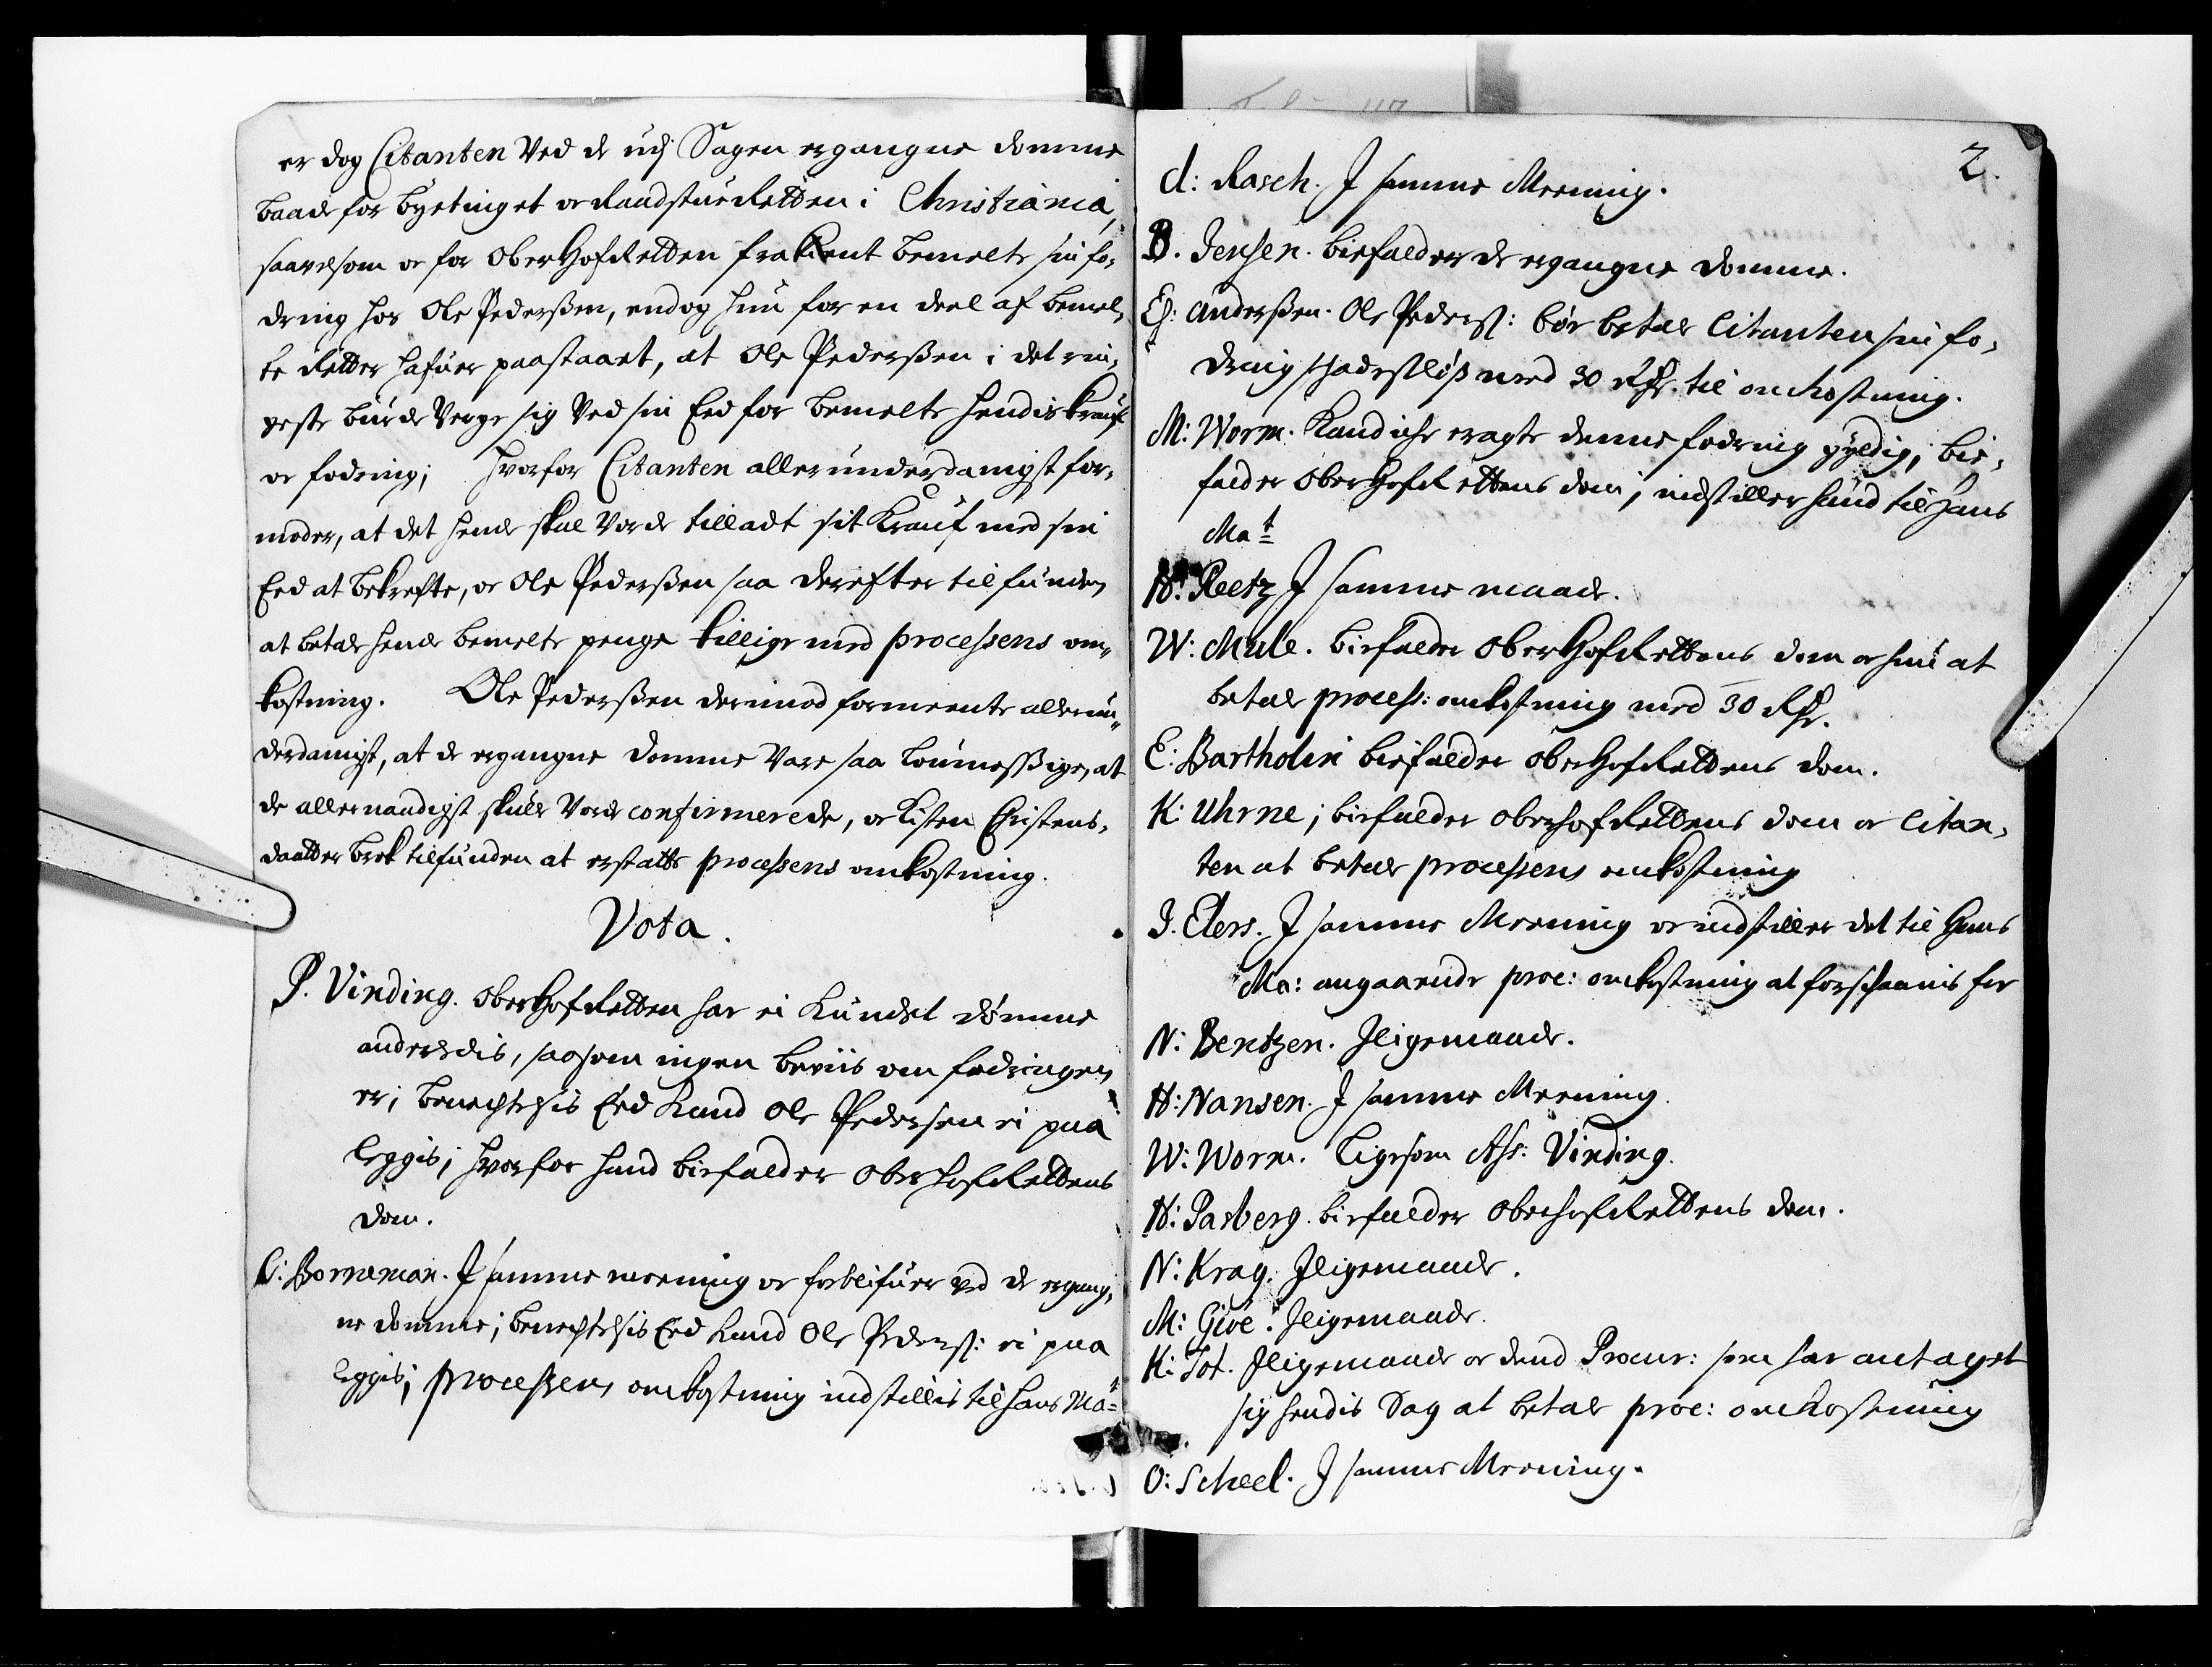 er dog Citanten Ved de udj Sagen ergangne domme
baade for byetinget oc Raadstue Retten i Christiania,
saavelsom oc for OberHofRetten frakient bemelte sin fo,
dring hos Ole Pederßen, endog hun for en deel af bemel,
te Retter hafuer paastaaet, at Ole Pederßen i det rin,
geste burde Verge sig Ved sin Eed for bemelte hendis krauf
oc fodring; hvorfor Citanten allerunderdanigst for,
moder, at det hende skal Vorde tilladt sit Krauf med sin
Eed at bekrefte, oc Ole Pederßen saa derefter tilfunden
at betale hende bemelte penge tillige med processens om,
kostning. Ole Pederßen derimod formeente allerun,
derdanigst, at de ergangne domme Vare saa loumessige, at
de allernaadigst skulle Vorde confirmerede, oc Kisten Christens,
daatter Brek tilfunden at erstatte processens omkostning.
Vota.
P. Vinding. OberHofRetten har ei kundet dømme
anderledis, saasom ingen beviis om fodringen
er; benechtelsis Eed kand Ole Pedersen ei paa
leggis; hvorfor hand biefalder OberHofRettens
dom.
C: Borneman. I samme meening oc forblifuer ved de ergang,
ne domme; benechtelsis Eed kand Ole Peders: ei paa
leggis; processens omkostning indstillis til hans Mat
2.
d: Rasch. I samme Meening.
B. Jensen. biefalder de ergangne domme.
Ej: anderßen. Ole Peders: bør betale Citanten sin fo,
dring skadesløs med 30 Rdr. til omkostning.
M: Worm. Kand icke eragte denne fodring gyldig, bie,
falder OberHofRettens dom, indstiller hund til Hans
Mat
H: Reetz I samme maade.
W: Mule. biefalder OberHofRettens dom oc hun at
betale process: omkostning med 30 Rdr.
E: Bartholin biefalder OberHofRettens dom.
K: Uhrne; biefalder OberhofRettens dom oc Citan,
ten at betale processens omkostning
J. Elers. I samme Meening oc indstiller det til Hans
Ma: angaaende proc: omkostning at forschaanis for
N: Bentzen. Iligemaade.
H: Nansen. I samme Meening.
W: Worm. Ligesom Ass: Vinding.
H: Parberg. biefalder OberhofRettens dom.
N: Krag. Iligemaade.
M: Giøe. Iligemaade.
K: Tot. Iligemaade oc dend Procur: som har antaget
sig hendis Sag at betale proc: omkostning
O: Scheel. I samme Meening.